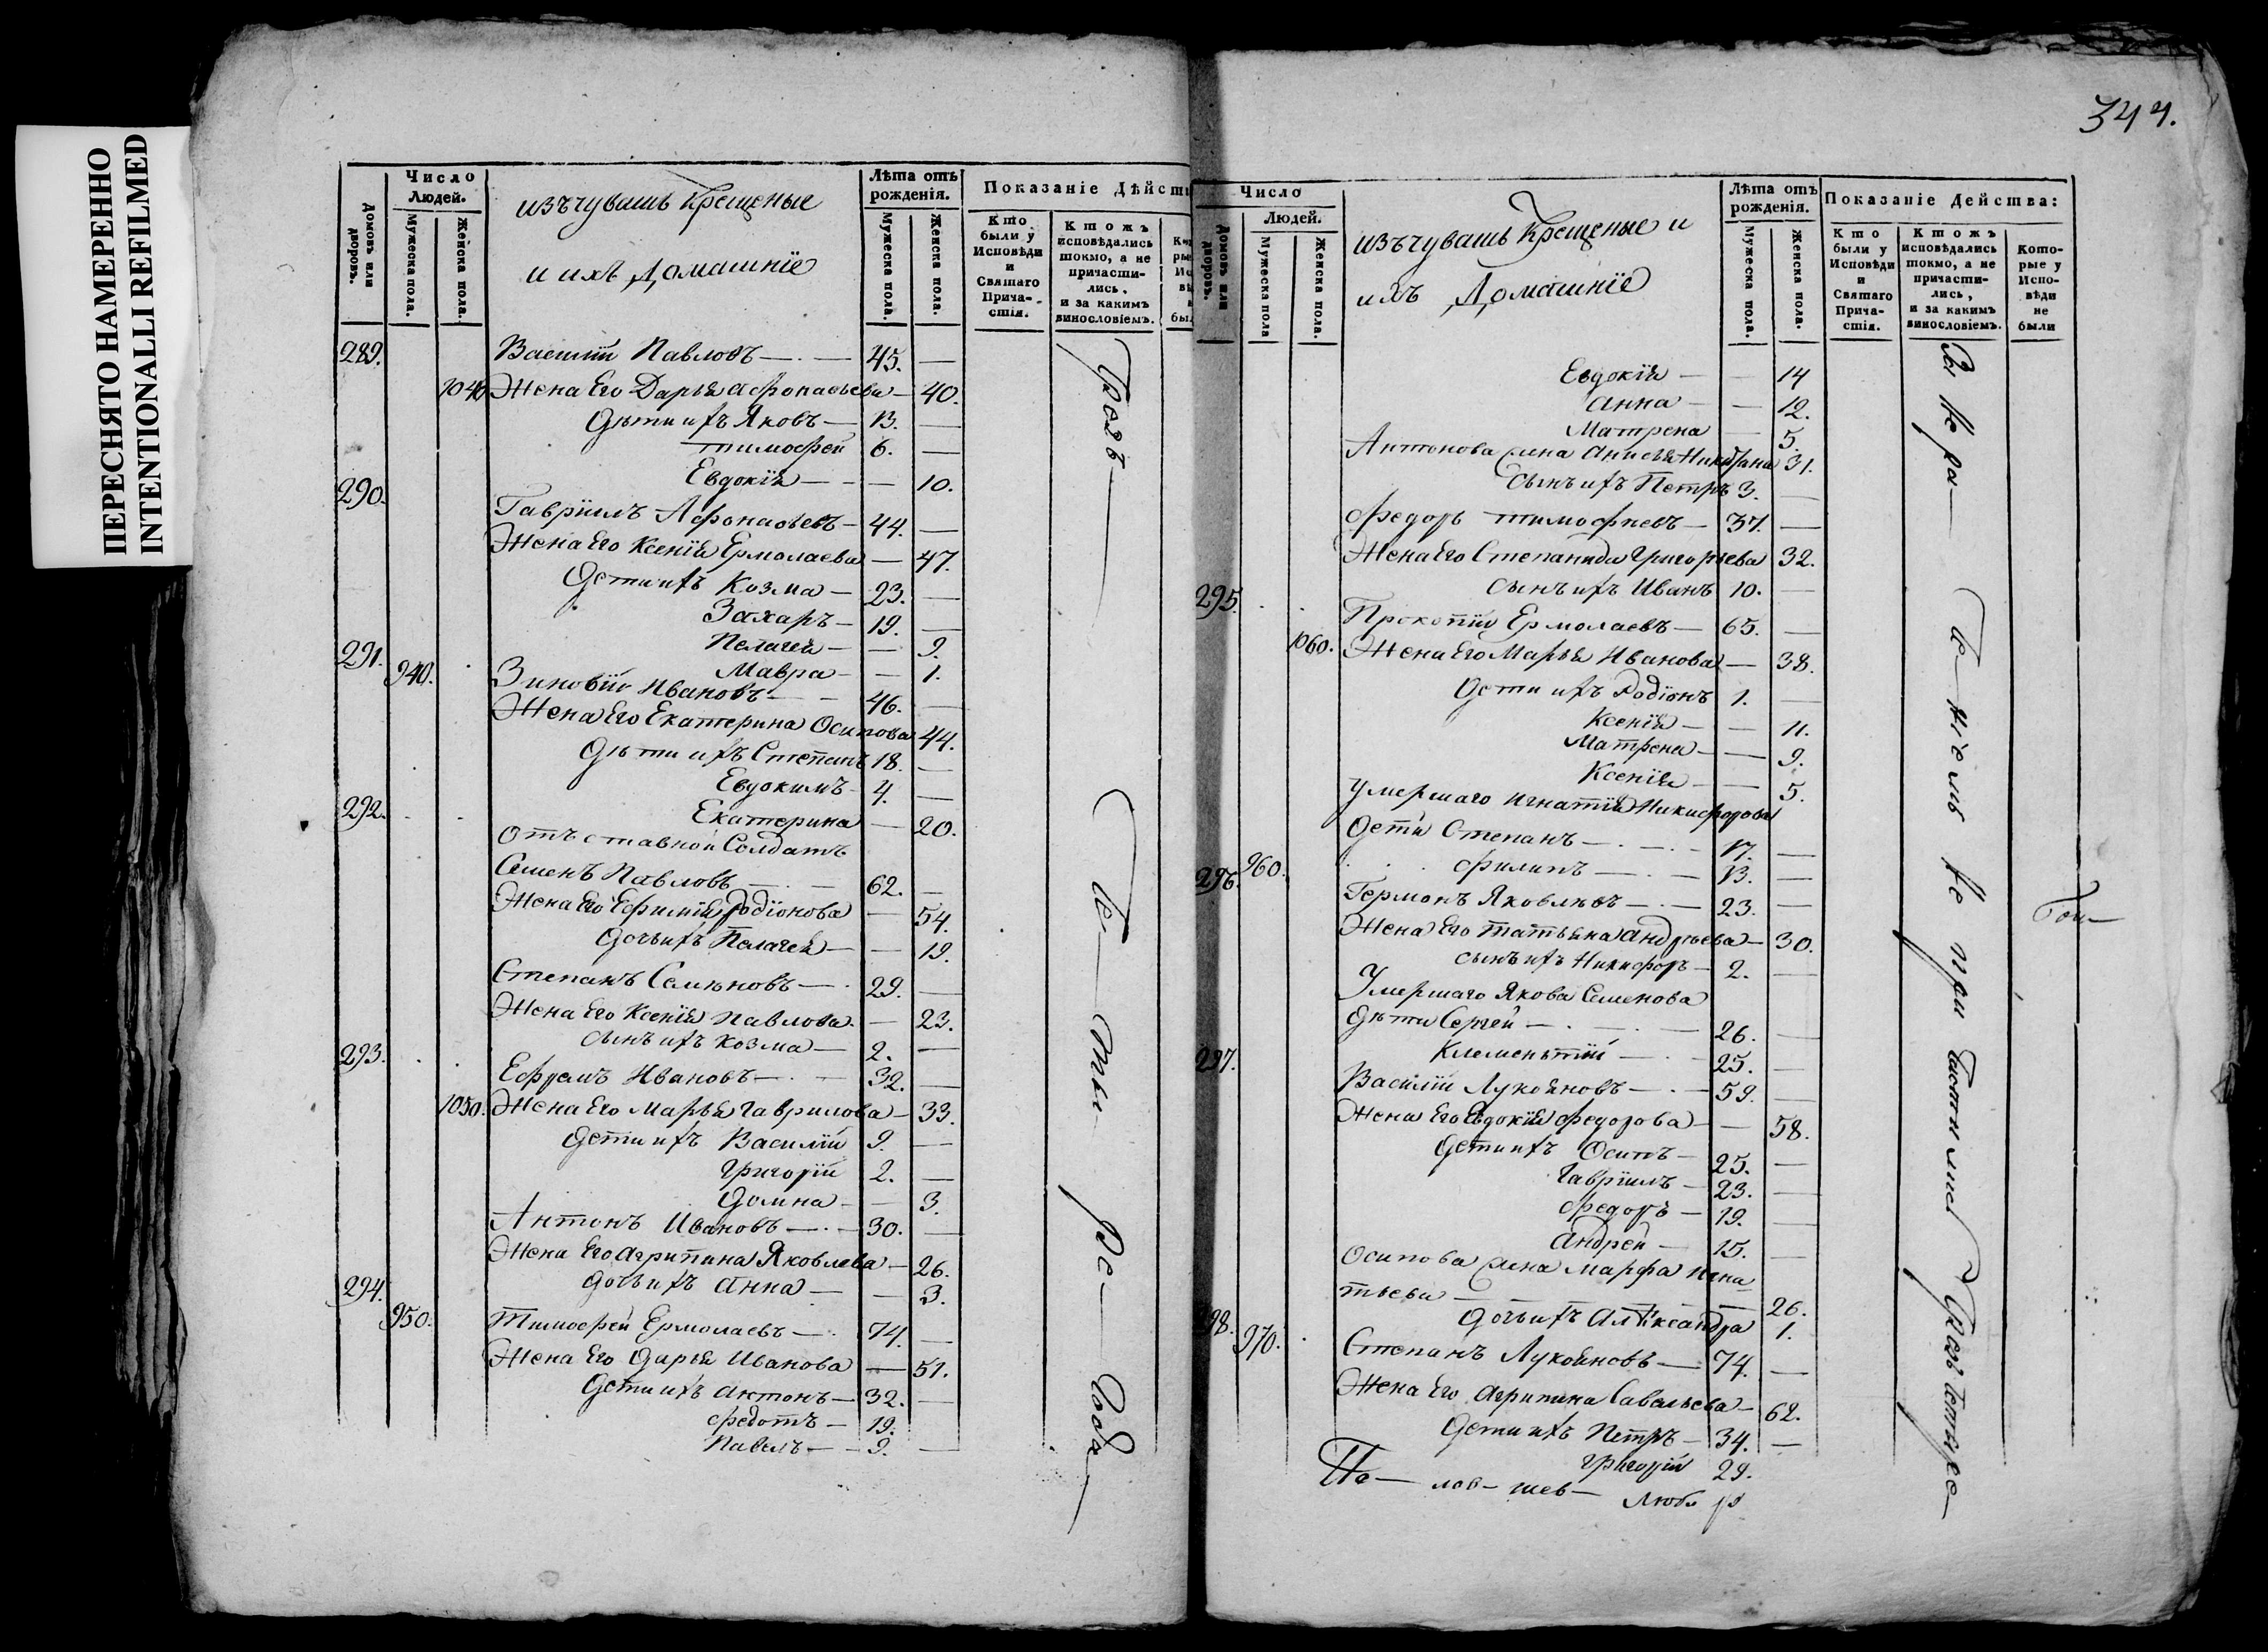 ПЕРЕСНЯТО НАМЕРЕННО
INTENTIONALLI REFILMED
Домовъ или дворовъ.
Число Людей.
Мужеска пола.
Женска пола.
изъ чувашъ крещеные
и ихъ домашнїе
Лѣта отъ рожденія.
Мужеска пола.
Женска пола.
Показаніе Дѣйст
Кто были у Исповѣди и Святаго Причастія.
Ктожъ исповѣдались токмо, а не причастились, и за какимъ винословіемъ.
289. Василїй Павловъ — 45. —
1040 Жена Его Дарья Афонасьева — 40.
Дѣти ихъ Яковъ — 13. —
Тимофей 6. —
Евдокїя — — 10.
290. Гаврїилъ Афонасьевъ — 44. —
Жена Его Ксенїя Ермолаева — 47.
Дети ихъ Козма — 23. —
Захаръ — 19. —
Пелагея — — 9.
Мавра — — 1.
291. 940. Зиновїй Ивановъ — 46. —
Жена Его Екатерина Осипова 44.
Дѣти ихъ Степанъ 18. —
Евдокимъ 4. —
Екатерина — 20.
292. Отъставной Солдатъ
Семенъ Павловъ — 62. —
Жена Его Ефимїя Родїонова — 54.
Дочь ихъ Пелагея — — 19.
Степанъ Семѣновъ — 29. —
Жена Его Ксенїя Павлова. — 23.
Сынъ ихъ Козма — 2. —
293. Ефремъ Ивановъ — 32. —
1050. Жена Его Марья Гаврилова — 33.
Дети ихъ Василїй 9. —
Григорїй 2. —
Домна — — 3.
Антонъ Ивановъ — 30. —
Жена Его Агрипина Яковлева — 26.
Дочь ихъ Анна — — 3.
294. 950. Тимофей Ермолаевъ — 74. —
Жена Его Дарья Иванова — 51.
Дети ихъ Антонъ — 32. —
Федотъ — 19. —
Павелъ — 9. —
344.
Домовъ или дворовъ.
Число Людей.
Мужеска пола
Женска пола.
изъ чувашъ крещеные и
ихъ домашнїе
Лѣта отъ рожденія.
Мужеска пола.
Женска пола.
Показаніе Действа:
Кто были у Исповѣди и Святаго Причастія.
Ктожъ исповѣдались токмо, а не причастились, и за какимъ винословіемъ.
Которые у Исповѣди не были
Евдокїя — — 14
Анна — — 12.
Матрена — 5.
Антонова Анисья 31.
Сынъ ихъ Петръ 3. —
Федоръ Тимофиевъ — 37. —
Жена Его Степанида Григорьева 32.
Сынъ ихъ Иванъ 10. —
295. Прокопїй Ермолаевъ — 65. —
1060. Жена Его Марья Иванова — 38.
Дети ихъ Родїонъ 1. —
Ксенїя — — 11.
Матрена — — 9.
Ксенїя — — 5.
Умершаго Игнатїя Никифорова
Дети Степанъ — 17. —
960. Филипъ — 13. —
296. Гермонъ Яковлѣвъ — 23. —
Жена Его Татьяна Андрѣева — 30.
Сынъ ихъ Никифоръ — 2. —
Умершаго Якова Семенова
Дѣти Сергей — 26. —
Клементїй — 25. —
297. Василїй Лукояновъ — 59. —
Жена Его Евдокїя Федорова — — 58.
Дети ихъ Осипъ — 25. —
Гаврїилъ — 23. —
Федоръ — 19. —
Андрей — 15. —
Осипова Жена Марфа Игна
тьева — — 26.
Дочь ихъ Александра 1.
298. 970. Степанъ Лукояновъ — 74. —
Жена Его Агрипина Савельева — 62.
Дети ихъ Петръ — 34. —
Григорїй 29.